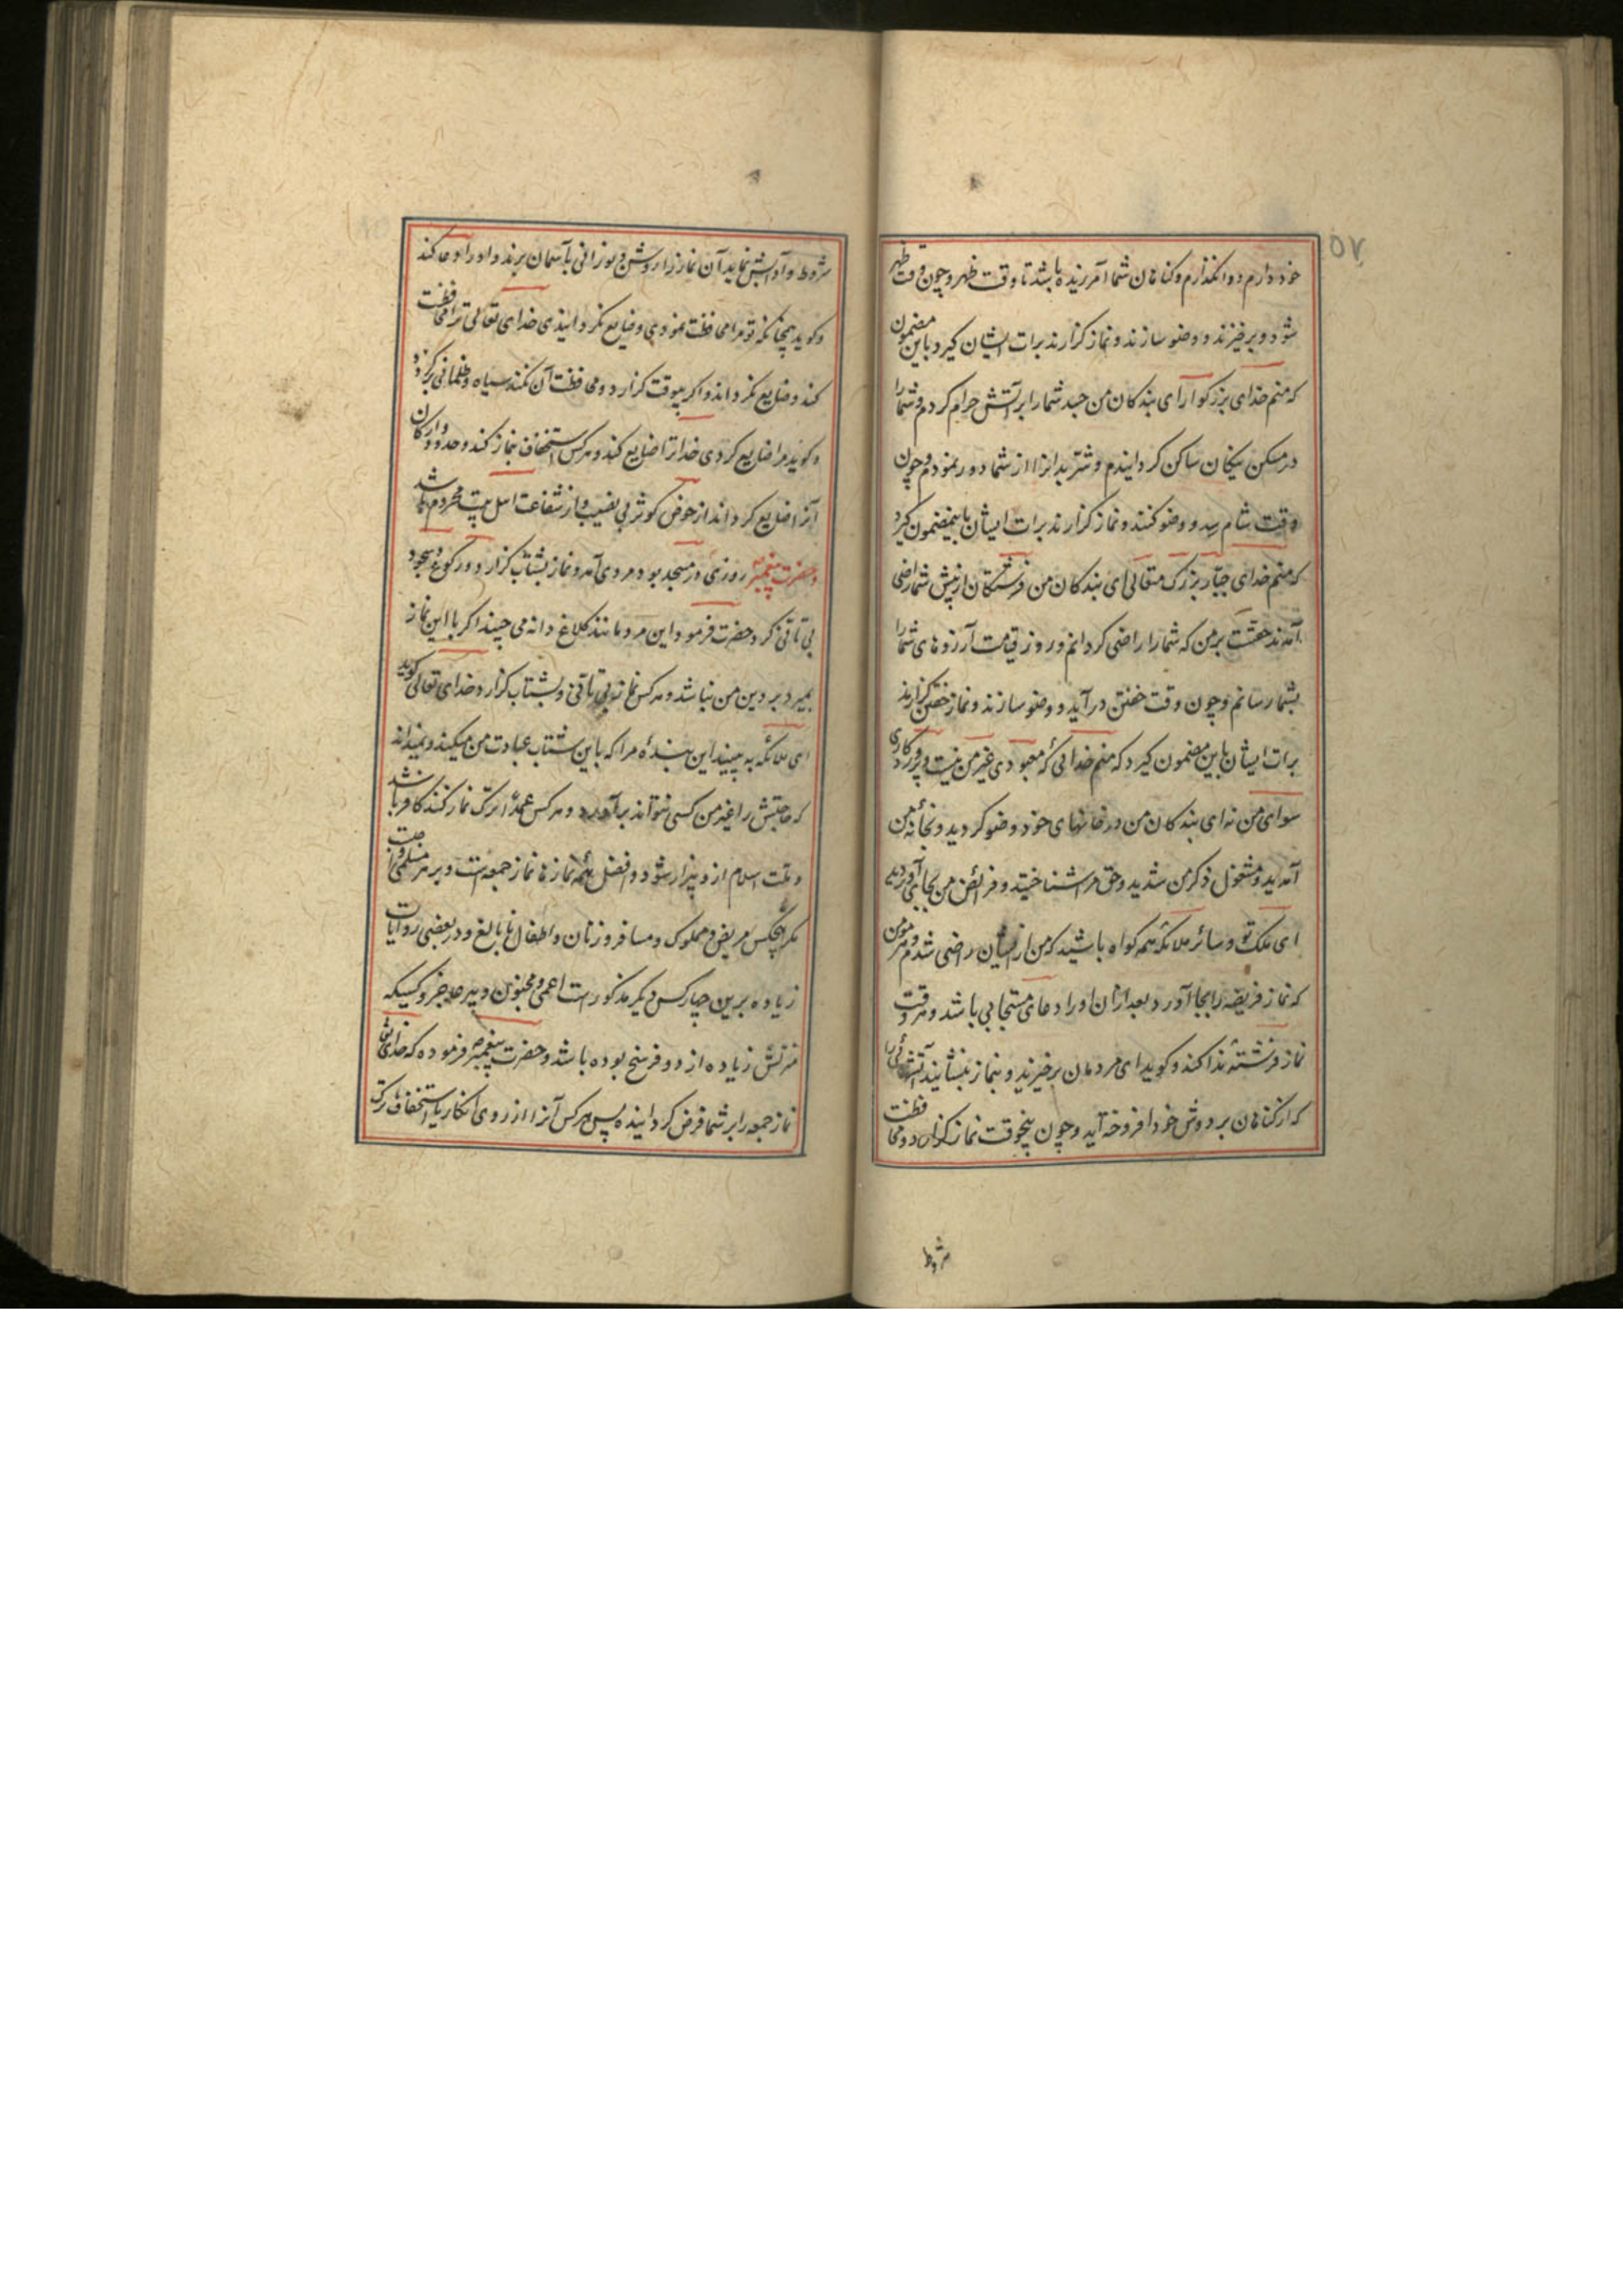 ۵۷
خود دارم و وانگذارم و کناهان شما آمرزیده باشد تا وقت ظهر و چون وقت ظهر
شود و برخیزند و وضو سازند و نماز کزارند برات ایشان کیرد باین مضمون
که منم خدای بزرکوار ای بندکان من جسد شما را بر آتش حرام کردم و شما را
در مسکن نیکان ساکن کردانیدم و شر بدانرا از شما دور نمودم و چون
وقت شام رسد و وضو کنند و نماز کزارند برات ایشان باینمضمون کیرد
که منم خدای جبار بزرک متعالی ای بندکان من فرشتکان از پیش شما راضی
آمدند حقست بر من که شما را راضی کردانم و روز قیامت آرزوهای شما را
بشما رسانم و چون وقت خفتن درآید و وضو سازند و نماز خفتن کزارند
برات ایشان باین مضمون کیرد که منم خدائی که معبودی غیر من نیست و پروردکاری
سوای من نه ای بندکان من در خانهای خود وضو کردید و بخانهٔ من
آمدید و مشغول ذکر من شدید و حق مرا شناختید و فرائض من بجای آوردید
ای ملک تو و سائر ملائکه همه کواه باشید که من از ایشان راضی شدم و هر مؤمن
که نماز فریضه را بجا آورد بعد از ان او را دعای مستجابی باشد و هر وقت
نماز فرشتهٔ ندا کند و کوید ای مردمان برخیزید و بنماز بنشانید آتشهائی را
که از کناهان بر دوش خود افروخته‌اید و چون پنجوقت نماز کزارد و محافظت
شروط
شروط و آدابش نماید آن نماز را روشن و نورانی بآسمان برند و او را دعا کند
و کوید همچنانکه تو مرا محافظت نمودی و ضایع نکردانیدی خدای تعالی ترا محافظت
کند و ضایع نکرداند و اکر بیوقت کزارد و محافظت آن نکند سیاه و ظلمانی برکردد
و کوید مرا ضایع کردی خدا ترا ضایع کند و هر کس استخفاف بنماز کند و حدود و ارکان
آنرا ضایع کرداند از حوض کوثر بی نصیب و از شفاعت اهل بیت محروم باشد
و حضرت پیغمبر روزی در مسجد بود مردی آمد و نماز بشتاب کزارد و در رکوع و سجود
بی تأنی کرد حضرت فرمود این مرد مانند کلاغ دانه می چیند اکر با این نماز
بمیرد بر دین من نباشد و هر کس نماز بی تأنی و بشتاب کزارد خدای تعالی کوید
ای ملائکه به بینید این بندهٔ مرا که باین شتاب عبادت من میکند و نمیداند
که حاجتش را غیر من کسی نتواند برآورد و هر کس عمداً ترک نماز کند کافر باشد
و ملت اسلام از و بیزار شود و افضل همه نماز ها نماز جمعه است و بر هر مسلمی واجبست
مکر پنجکس مریض و مملوک و مسافر و زنان و اطفال نابالغ و در بعضی روایات
زیاده برین چهار کس دیکر مذکورست اعمی و مجنون و پیر عاجز و کسیکه
منزلش زیاده از دو فرسخ بوده باشد و حضرت پیغمبر فرموده که خدای تعالی
نماز جمعه را بر شما فرض کردانیده پس هر کس آنرا از روی انکار یا استخفاف ترک